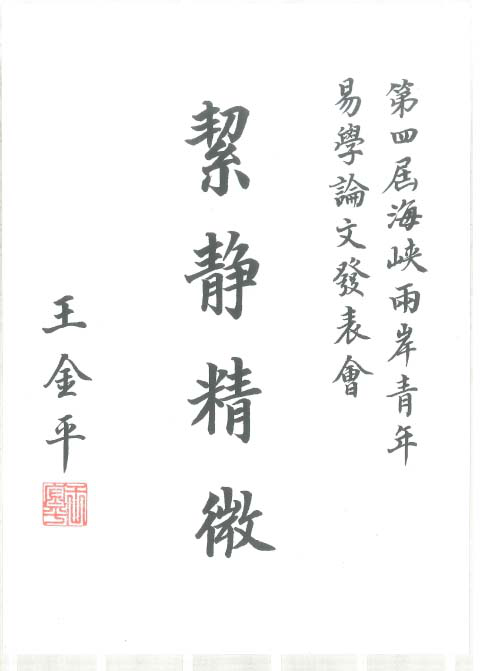 第四屆海峽兩岸青年
易學論文發表會
絜靜精微
王金平